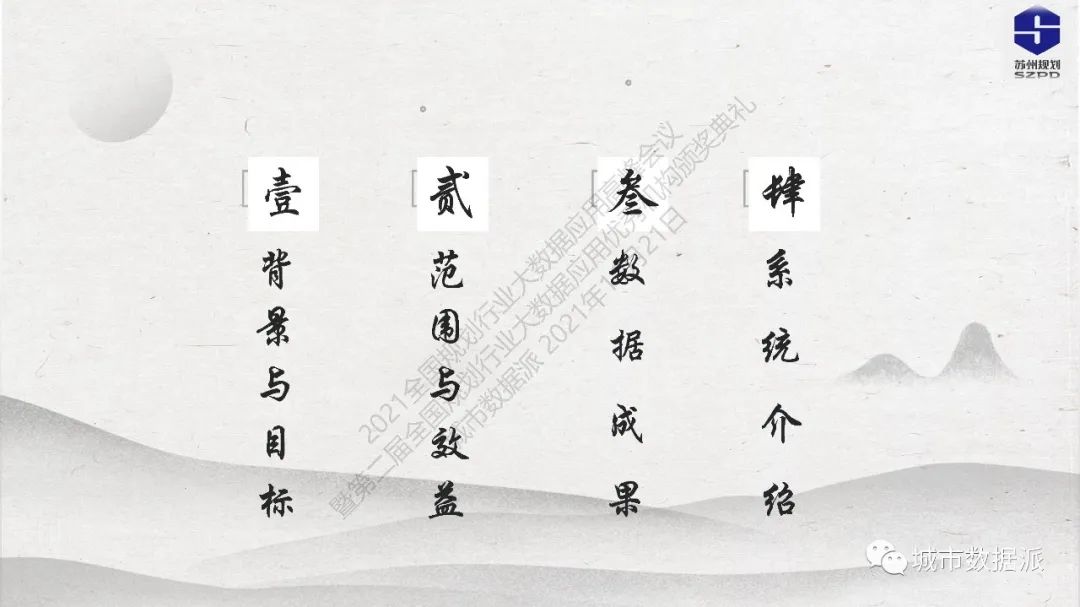 苏州规划
SZPD
壹
背景与目标
贰
范围与效益
叁
数据成果
肆
系统介绍
2021全国规划行业大数据应用高峰会议
暨第二届全国规划行业大数据应用优秀机构颁奖典礼
城市数据派 2021年1月21日
城市数据派